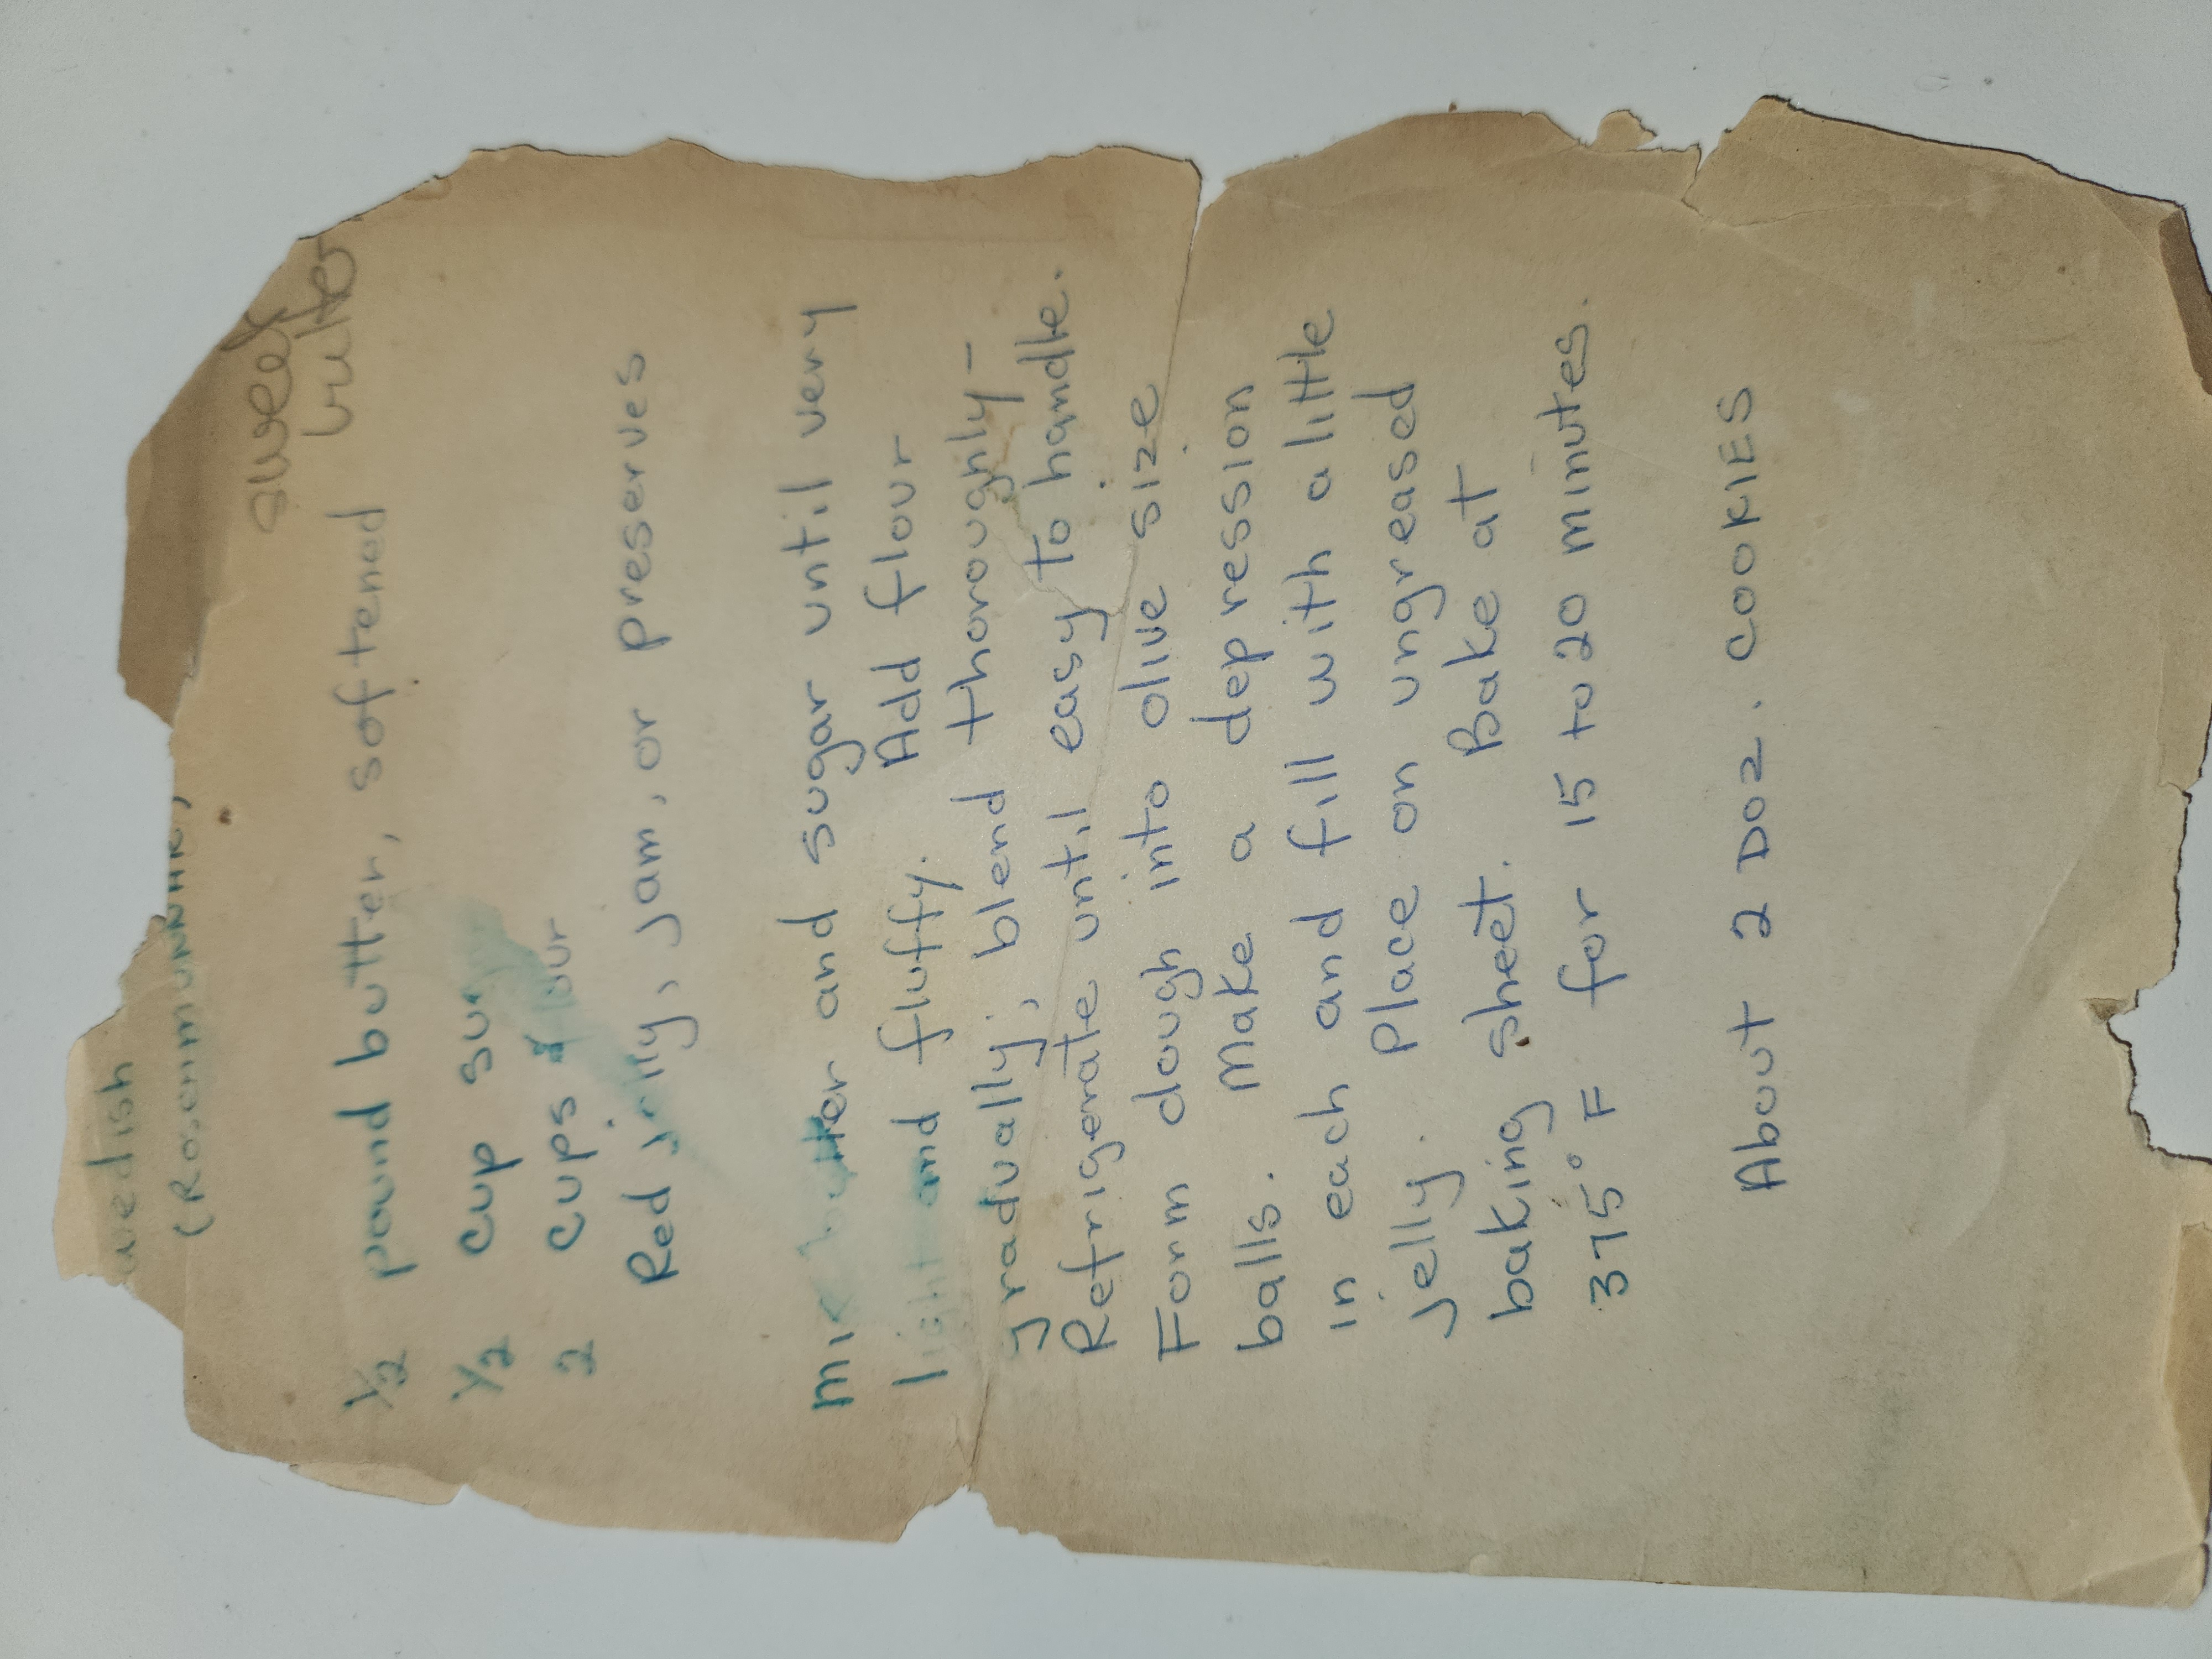 wedish
(Rosenmunnar)
sweet
butter
1/2 pound butter, softened
1/2 cup
2 cups flour
Red jelly, jam, or preserves
Mix butter and sugar until very
light and fluffy. Add flour
gradually; blend thoroughly-
Refrigerate until easy to handle.
Form dough into olive size
balls. Make a depression
in each and fill with a little
jelly. Place on ungreased
baking sheet. Bake at
375° F for 15 to 20 minutes.
About 2 DOZ. COOKIES